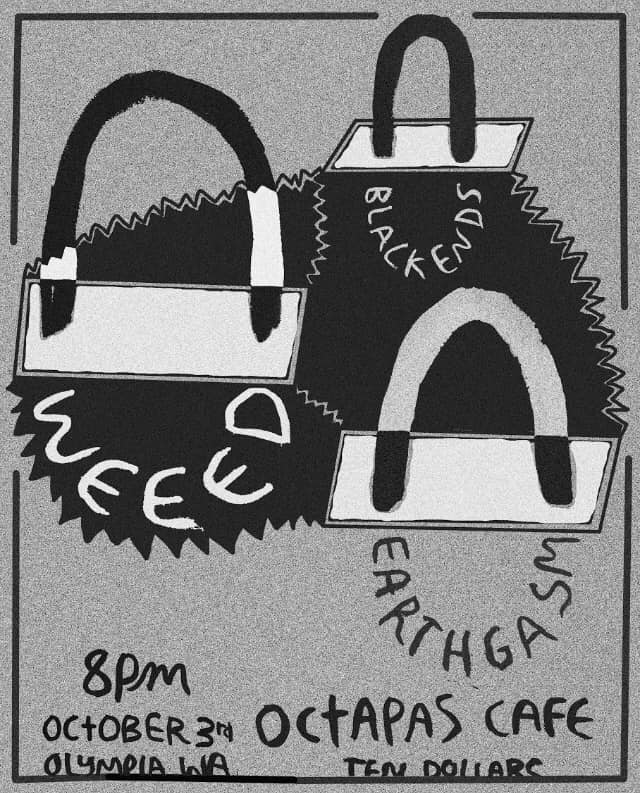 BLACKENDS
WEEED
EARTHGASM
8pm
OCTOBER 3rd
OLYMPIA WA
OCTAPAS CAFE
TEN DOLLARS